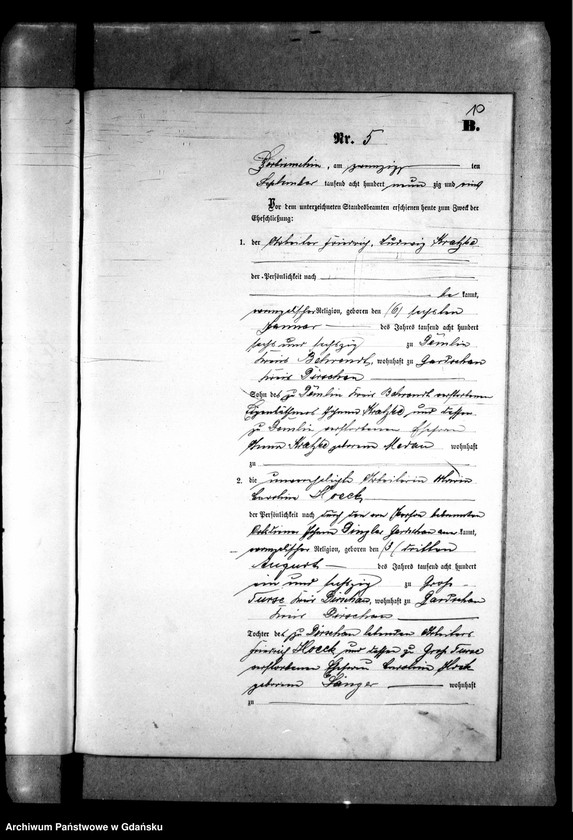 10
B.
Nr. 5
am zwanzigsten ten
September tausend acht hundert neun zig und eins
Vor dem unterzeichneten Standesbeamten erschienen heute zum Zweck der
Eheschließung:
1. der Arbeiter Friedrich, Ludwig Kratzke
der Persönlichkeit nach
be kannt,
evangelischer Religion, geboren den (6) sechsten
Januar des Jahres tausend acht hundert
sechs und sechzig zu Demlin
Kreis Behrendt, wohnhaft zu Gardschau
Kreis Dirschau
Sohn des zu Demlin Kreis Behrendt verstorbenen
Eigenthümers Johann Kratzke und dessen
zu Demlin verstorbenen Ehefrau
Anna Kratzke geborene wohnhaft
zu
2. die unverehelichte Arbeiterin Maria
Caroline Hoeck,
der Persönlichkeit nach durch den von Person bekannten
Johann Gardschau aner kannt,
evangelischer Religion, geboren den (3) dritten
August des Jahres tausend acht hundert
ein und sechzig zu Groß
Turse Kreis Dirschau, wohnhaft zu Gardschau
Kreis Dirschau
Tochter des zu Dirschau lebenden Arbeiters
Friedrich Hoeck und dessen zu Groß Turse
verstorbenen Ehefrau Caroline Hoeck
geborene Sänger wohnhaft
zu
Archiwum Państwowe w Gdańsku